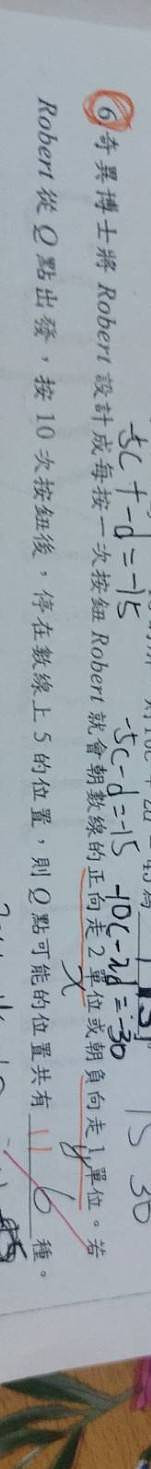 -5c+-d=-15
-5c-d=-15
-10c-2d=-30
15 30
⑥ 奇異博士將 Robert 設計成每按一次按鈕 Robert 就會朝數線的正向走 2 單位或朝負向走 1 單位。若
x
y
Robert 從 Q 點出發，按 10 次按鈕後，停在數線上 5 的位置，則 Q 點可能的位置共有 11 6 種。